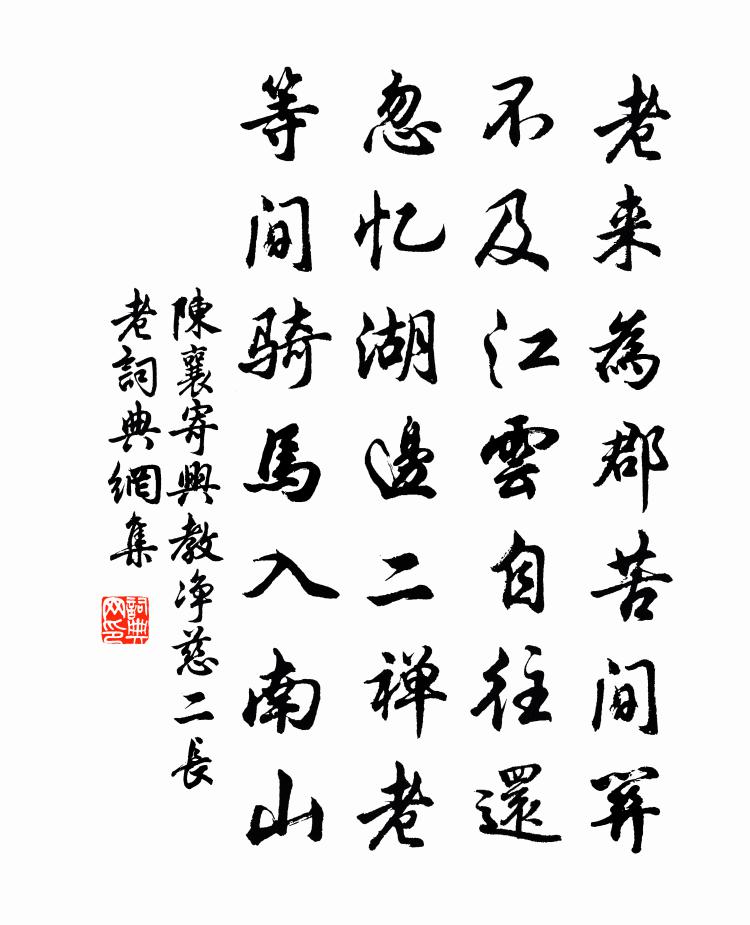 老来為郡苦間關
不及江雲自往還
忽忆湖邊二禅老
等間騎馬入南山
陳襄寄興教净慈二長
老詞典網集
詞典
网印